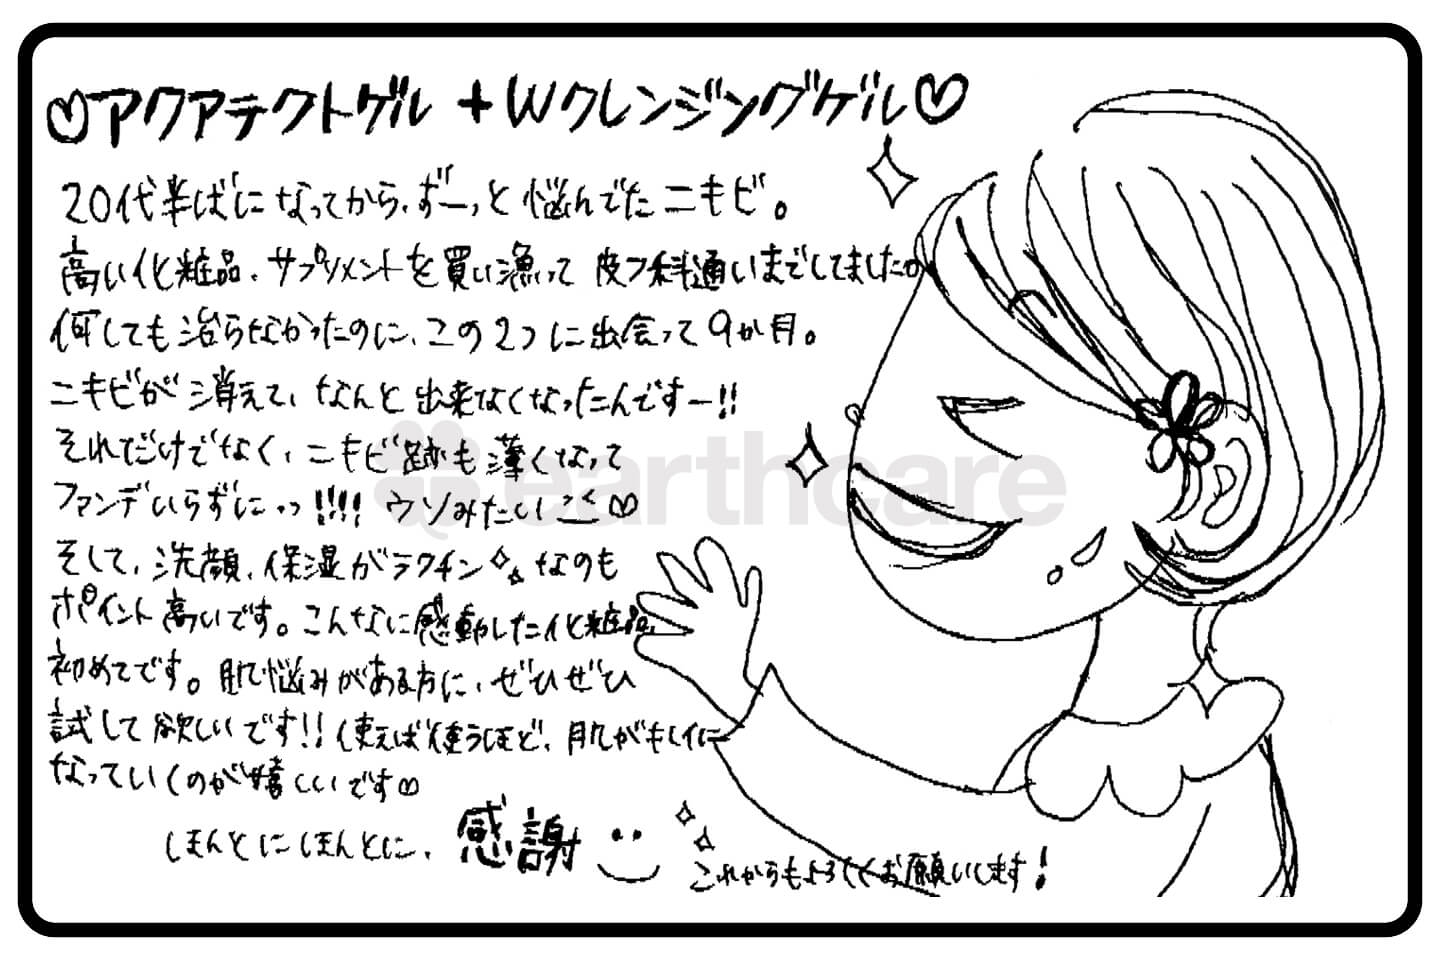 ♡アクアテクトゲル+Wクレンジングゲル♡
20代半ばになってから、ずーっと悩んでたニキビ。
高い化粧品、サプリメントを買い漁って皮フ科通いまでしてました。
何しても治らなかったのに、この2つに出会って9か月。
ニキビが消えて、なんと出来なくなったんですー!!
それだけでなく、ニキビ跡も薄くなって
ファンデいらずにっっ!!!! ウソみたい♡
earthcare
そして、洗顔、保湿がラクチンなのも
ポイント高いです。こんなに感動した化粧品、
初めてです。肌で悩みがある方に、ぜひぜひ
試して欲しいです!!使えば使うほど、肌がキレイに
なっていくのが嬉しいです♡
ほんとにほんとに、感謝
これからもよろしくお願いします!